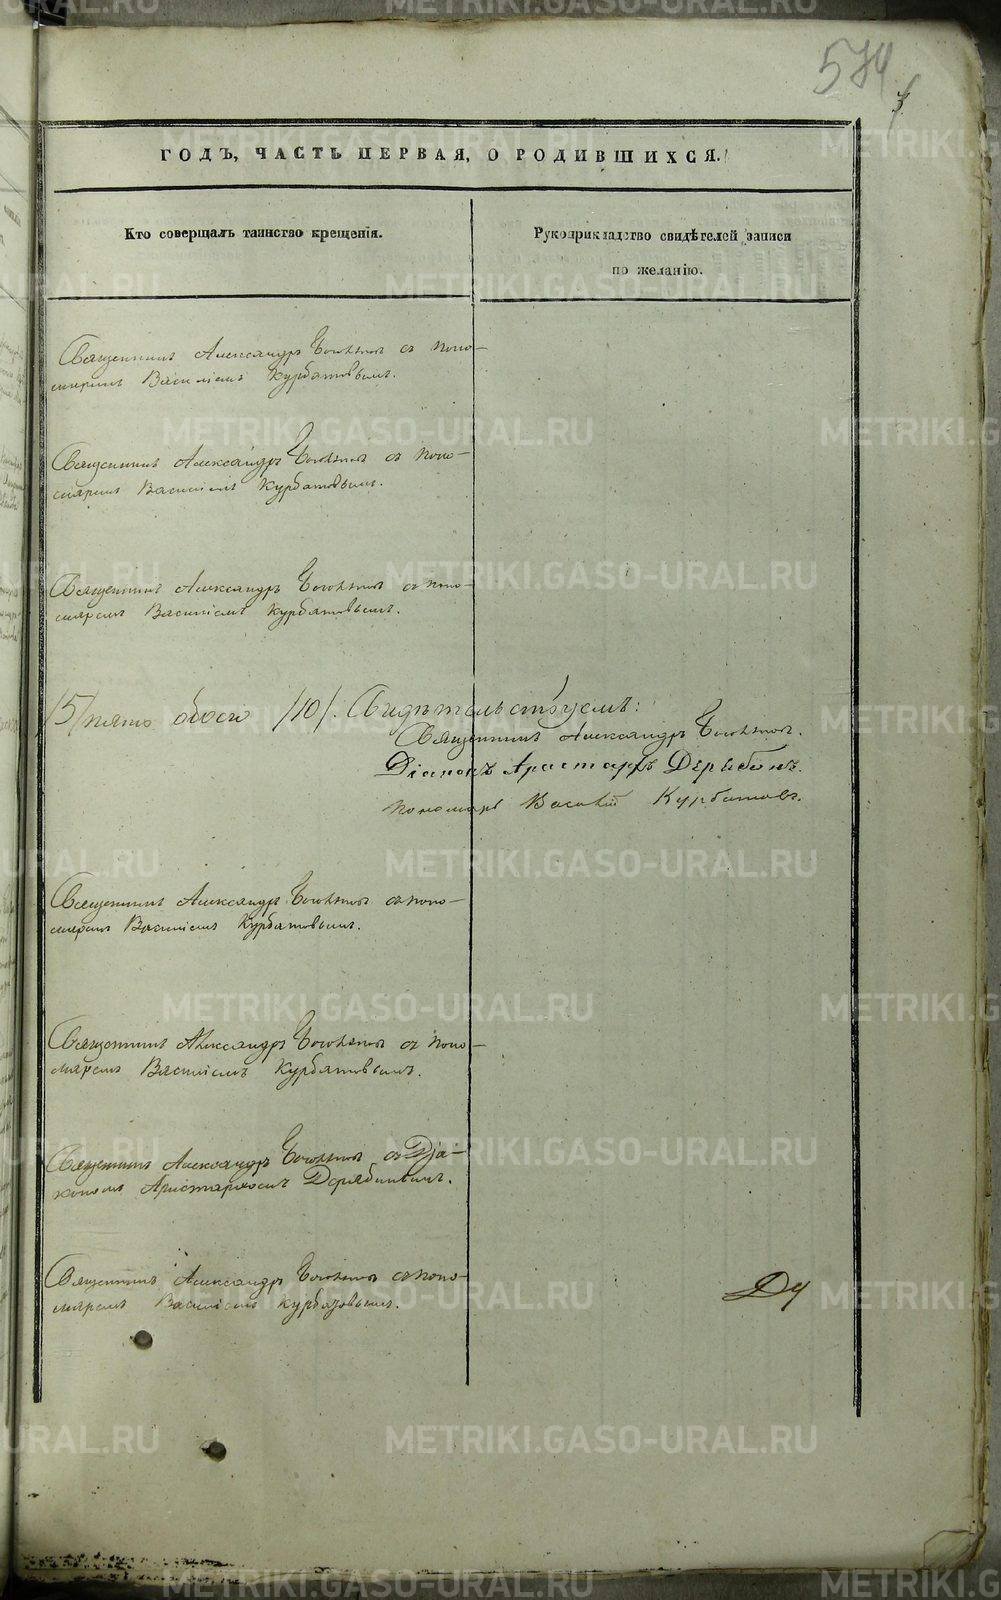 574
ГОДЪ, ЧАСТЬ ПЕРВАЯ, О РОДИВШИХСЯ.
Кто совершалъ таинство крещенія.
Рукоприкладство свидѣтелей записи
по желанію.
Священникъ Александръ с поно-
маремъ Василіемъ Курбатовымъ.
Священникъ Александръ съ поно-
маремъ Василіемъ Курбатовымъ.
Священникъ Александръ съ поно-
маремъ Василіемъ Курбатовымъ.
/5/ обоего /10/. Свидѣтельствуемъ:
Священникъ Александръ
Діаконъ Аристархъ Дерябинъ.
Пономарь Василій Курбатовъ.
Священникъ Александръ съ поно-
маремъ Василіемъ Курбатовымъ.
Священникъ Александръ съ поно-
маремъ Василіемъ Курбатовымъ.
Священникъ Александръ съ Діа-
кономъ Аристархомъ Дерябинымъ.
Священникъ Александръ съ поно-
маремъ Василіемъ Курбатовымъ.
METRIKI.GASO-URAL.RU